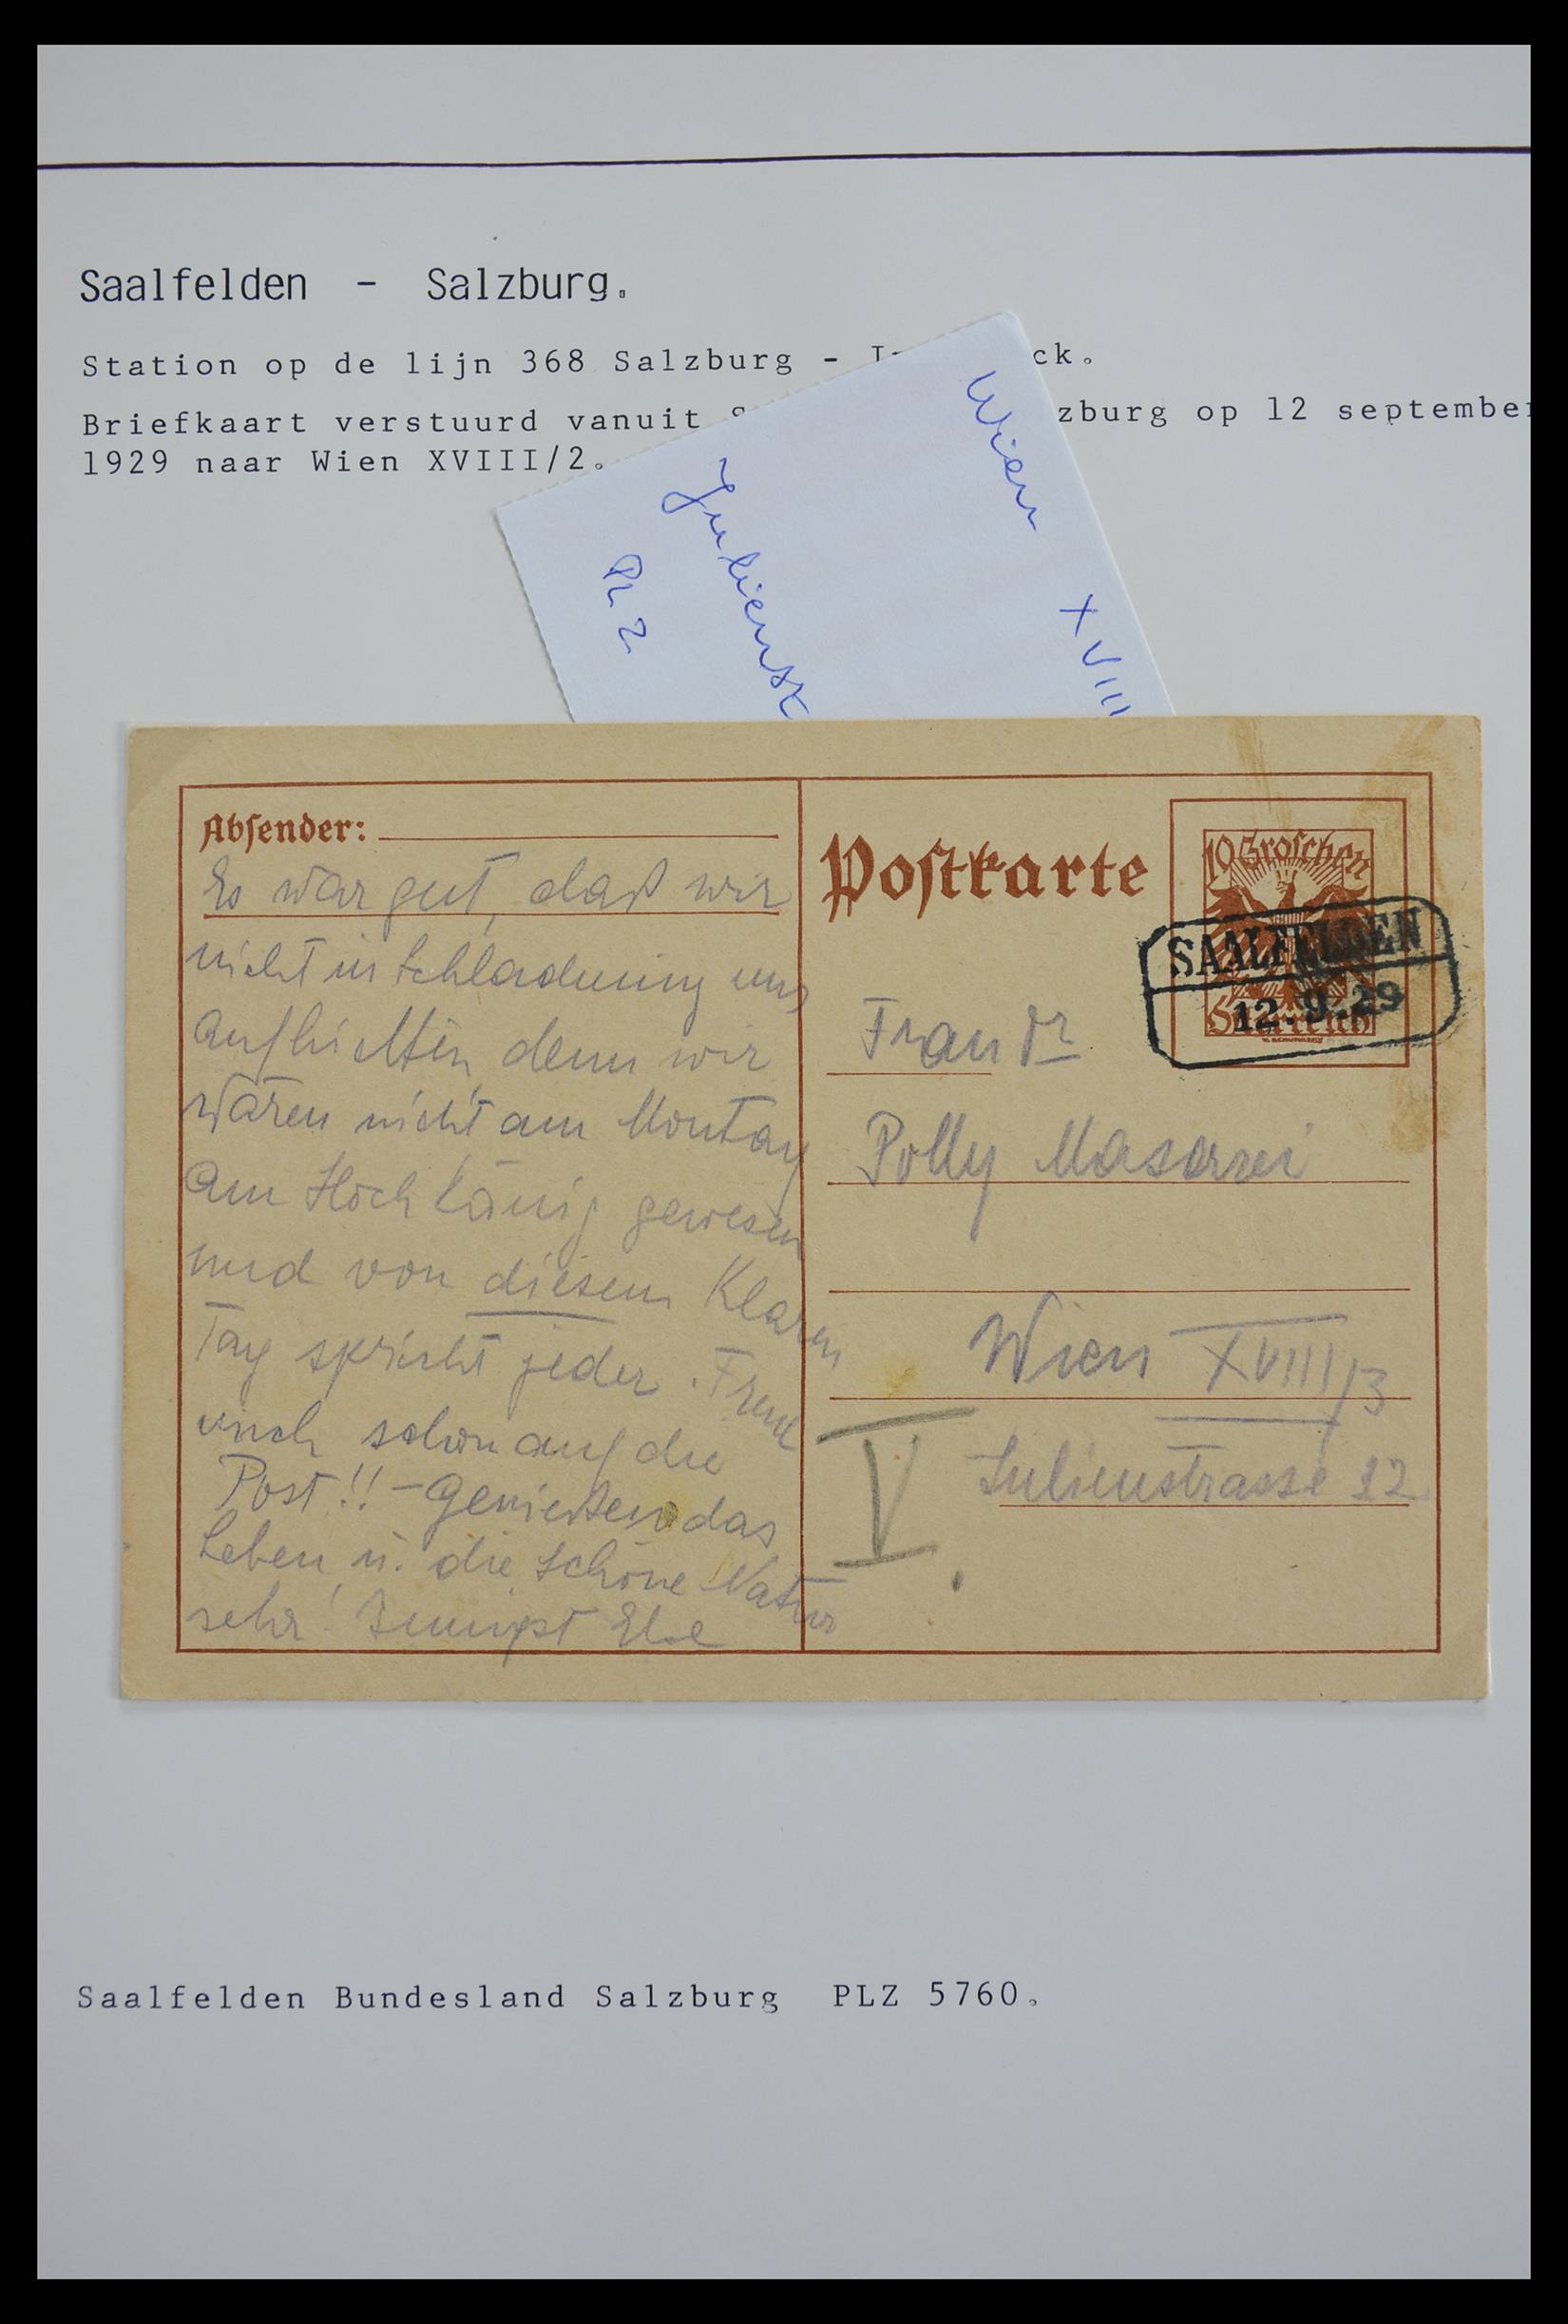 Saalfelden - Salzburg.
Station op de lijn 368 Salzburg - I ck.
Briefkaart verstuurd vanuit S zburg op 12 september
1929 naar Wien XVIII/2.
Wien XVIII
Julienst
PLZ
Absender:
Es war gut, daß wir
nicht in Schladming uns
aufhielten, denn wir
wären nicht am Montag
am Hochkönig gewesen
und von diesem klaren
Tag spricht jeder. Freue
mich schon auf die
Post!! - Genießen das
Leben u. die schöne Natur
sehr! Innigst Else
Postkarte
10 Groschen
Österreich
SAALFELDEN
12.9.29
Frau Dr
Polly
Wien XVIII/3
Julienstrasse 12
V.
Saalfelden Bundesland Salzburg PLZ 5760.